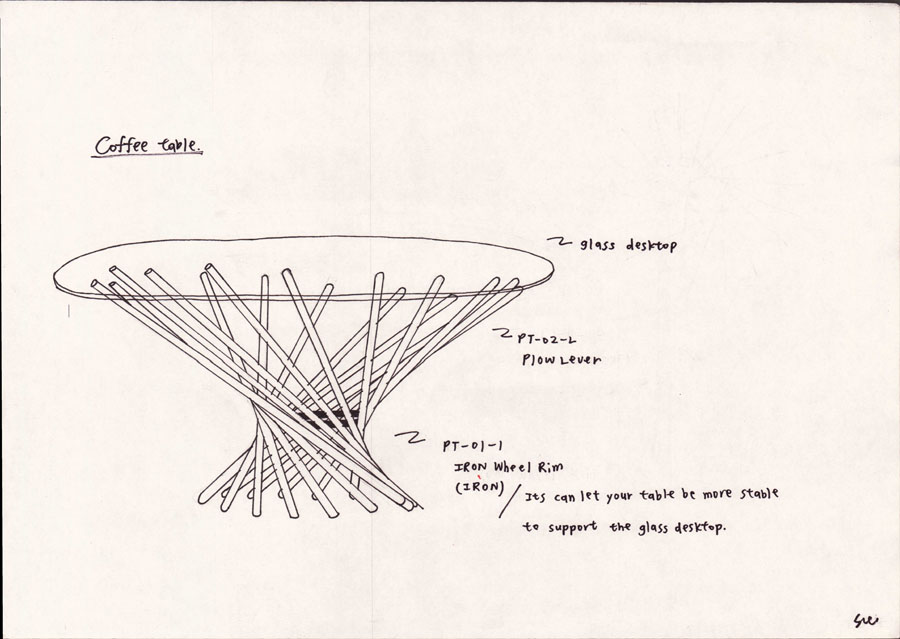 Coffee table.
glass desktop
PT-02-L
Plow Lever
PT-01-1
IRON Wheel Rim
(IRON)
Its can let your table be more stable
to support the glass desktop.